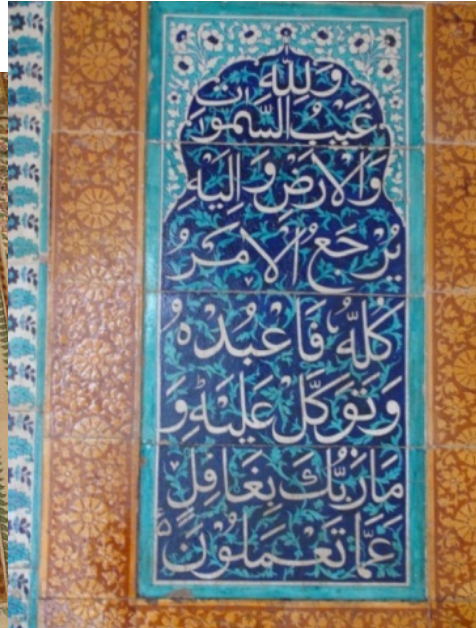 وَلِلّٰهِ
غَيْبُ السَّمٰوٰتِ
وَالْاَرْضِ وَاِلَيْهِ
يُرْجَعُ الْاَمْرُ
كُلُّهٗ فَاعْبُدْهُ
وَتَوَكَّلْ عَلَيْهِؕ وَ
مَا رَبُّكَ بِغَافِلٍ
عَمَّا تَعْمَلُوْنَ